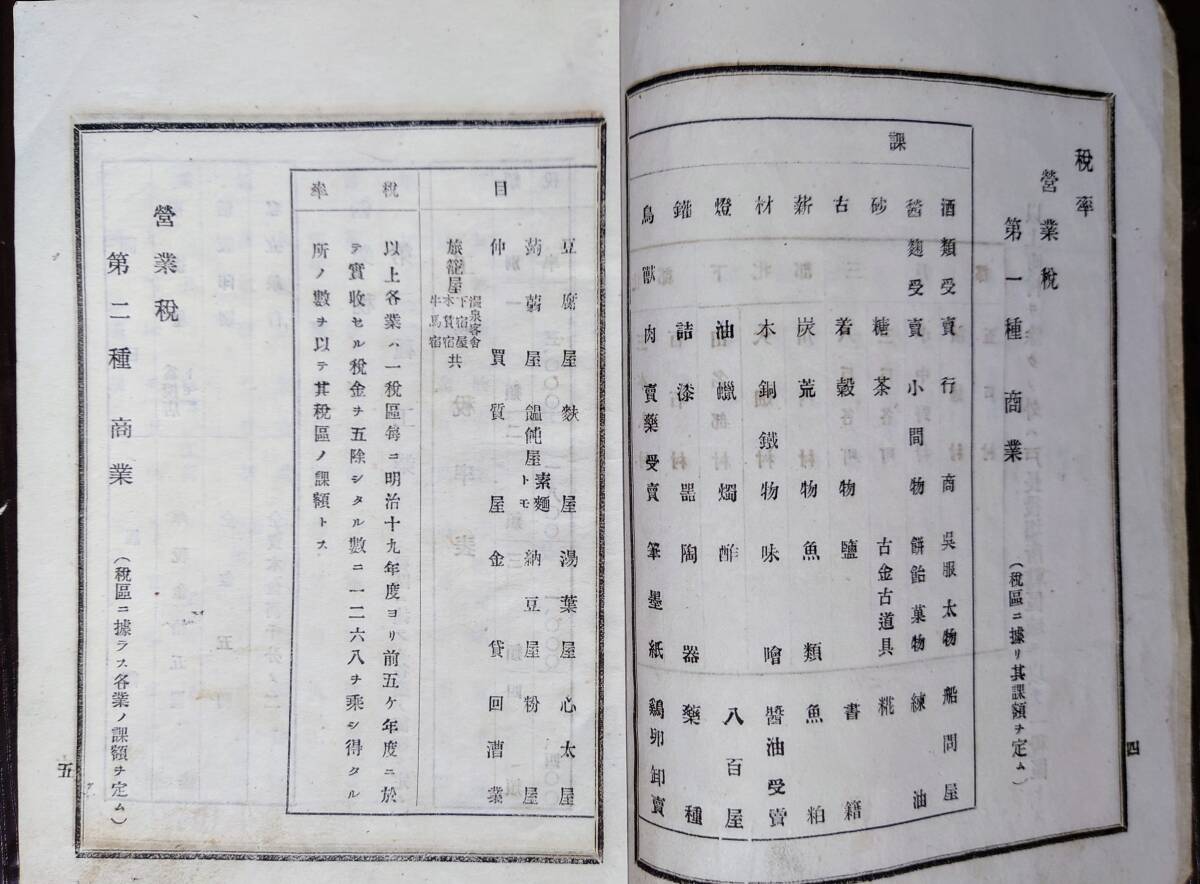 稅率
營業稅
第一種商業 (稅區ニ據リ其課額ヲ定ム)
課
酒類受賣 行商 吳服太物 船問屋
醬麴受賣 小間物 餅飴菓物 練油
砂糖 茶 古金古道具 糀
古着 穀物 鹽 書籍
薪炭 荒物 魚類 魚粕
材木 銅鐵物 味噌 醬油受賣
燈油 蠟燭 酢 八百屋
鑵詰 漆器 陶器 藥種
鳥獸肉賣 藥受賣 筆墨紙 鷄卵卸賣
四
目
豆腐屋 麩屋 湯葉屋 心太屋
蒟蒻屋 饂飩屋素麵トモ 納豆屋 粉屋
仲買 質屋 金貸 回漕業
旅籠屋 溫泉客舍 下宿屋 木賃宿 牛馬宿 共
稅率
以上各業ハ一稅區每ニ明治十九年度ヨリ前五ケ年度ニ於
テ實收セル稅金ヲ五除シタル數ニ一二六八ヲ乘シ得タル
所ノ數ヲ以テ其稅區ノ課額トス
營業稅
第二種商業 (稅區ニ據ラス各業ノ課額ヲ定ム)
五